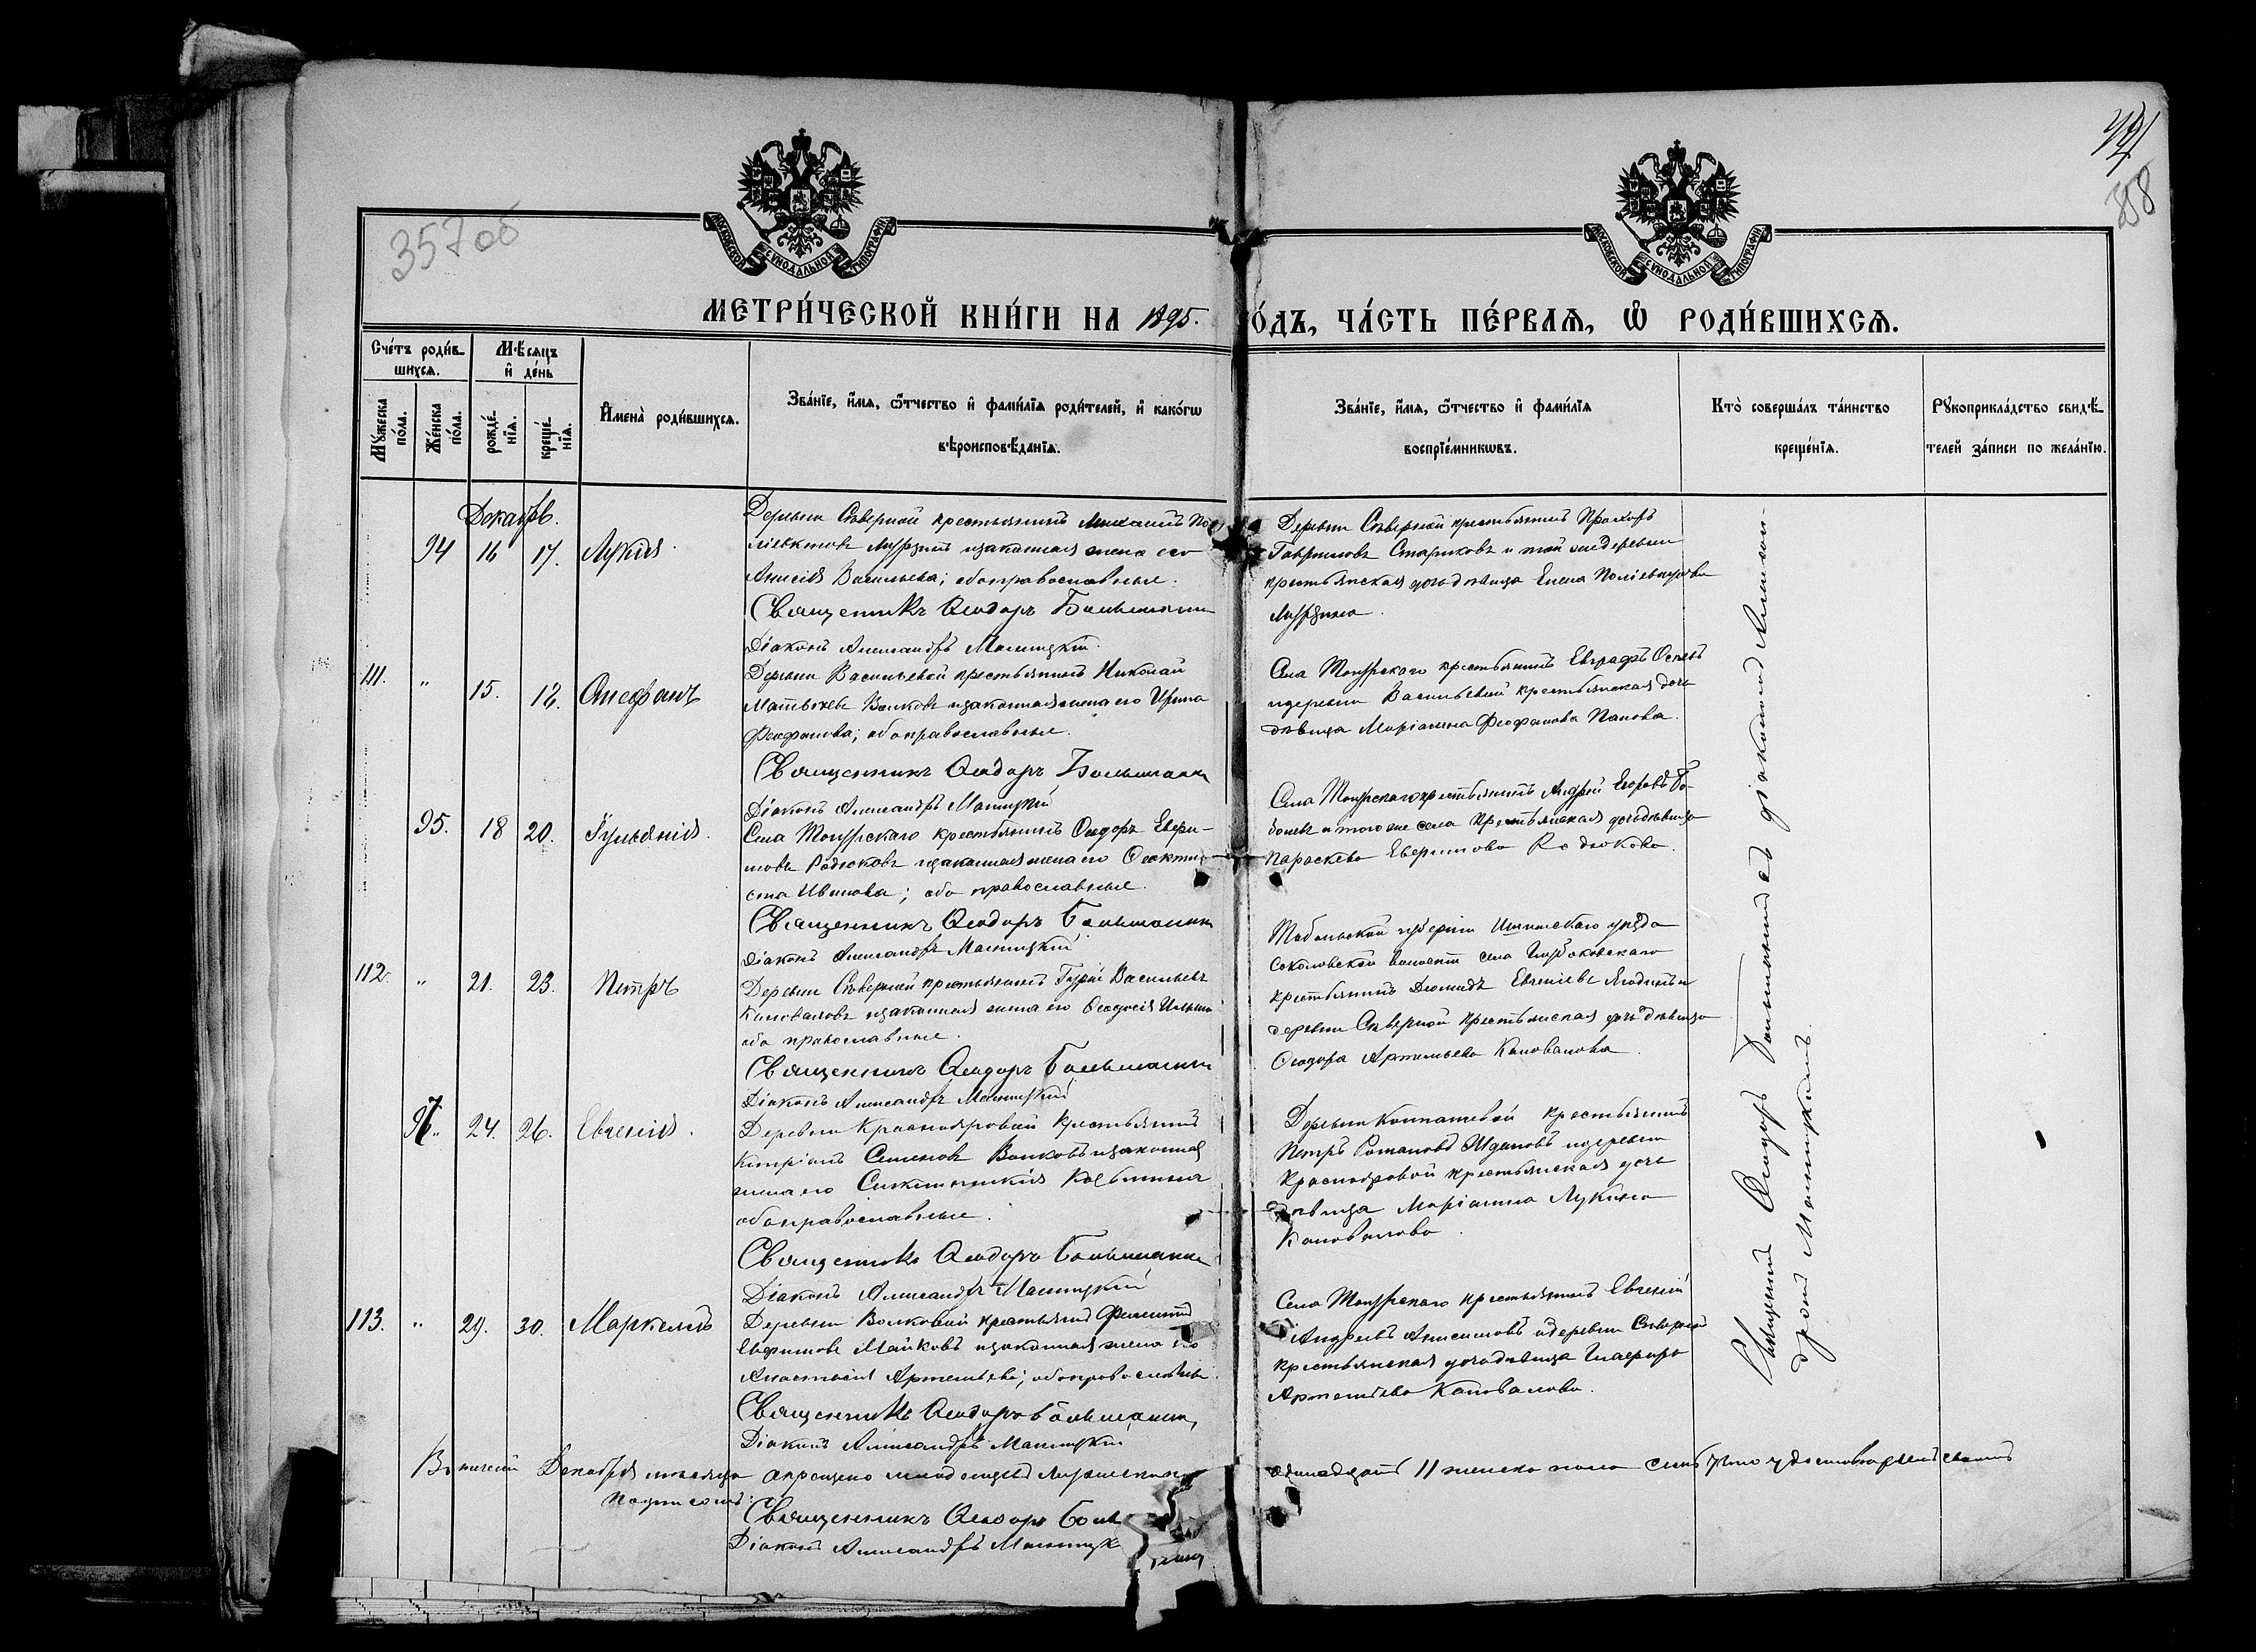 357об
358
МОСКОВСКОЙ СУНОДАЛЬНОЙ ТИПОГРАФІИ
МОСКОВСКОЙ СУНОДАЛЬНОЙ ТИПОГРАФІИ
МЕТРИ́ЧЕСКОЙ КНИ́ГИ НА 1895. ГО́ДЪ, ЧА́СТЬ ПЕ́РВАѦ, Ѡ҆ РОДИ́ВШИХСѦ.
Сче́тъ роди́в-
шихсѧ.
Мꙋ́жеска по́ла.
Же́нска по́ла.
Мѣ́сѧцъ
и҆ де́нь
рожде́-
нїѧ.
креще́-
нїѧ.
И҆мена̀ роди́вшихсѧ.
Зва́нїе, и҆́мѧ, ѻ҆́тчество и҆ фами́лїѧ роди́телей, и҆ како́гѡ
вѣроисповѣ́данїѧ.
Зва́нїе, и҆́мѧ, ѻ҆́тчество и҆ фами́лїѧ
воспрїе́мникѡвъ.
Кто̀ соверша́лъ та́инство
креще́нїѧ.
Рꙋкоприкла́дство свидѣ́-
телей за́писи по жела́нїю.
Декабрь.
94 16 17. Лукія
Деревни Сѣверной крестьянинъ Михаилъ По-
ліевктовъ Мурзинъ и законная жена его
Анисія Васильева; оба православные.
Священникъ Ѳеодоръ Большанинъ
Діаконъ Александръ
Деревни Сѣверной крестьянинъ Прохоръ
Гавриловъ Стариковъ и той же деревни
крестьянская дочь дѣвица Елена Поліевктова
Мурзина
111. " 15. 18. Стефанъ
Деревни Васильевой крестьянинъ Николай
Матвѣевъ Волковъ и законная жена его Ирина
Феофанова; оба православные.
Священникъ Ѳеодоръ Большанинъ
Діаконъ Александръ
Села крестьянинъ Евграфъ
и деревни Васильевой крестьянская дочь
дѣвица Маріамна Феофанова Панова.
95. 18 20. Іуліанія.
Села крестьянинъ Ѳеодоръ
Родюковъ и законная жена его Ѳеокти-
ста Иванова; оба православные.
Священникъ Ѳеодоръ Большанинъ
Діаконъ Александръ
Села крестьянинъ Андрей Егоровъ
и того же села крестьянская дочь дѣвица
Параскева Родюкова.
112. " 21. 23. Петръ
Деревни Сѣверной крестьянинъ Гурій Васильевъ
Коноваловъ и законная жена его Ѳеодосія Ильина
оба православные.
Священникъ Ѳеодоръ Большанинъ
Діаконъ Александръ
Тобольской губерніи Ишимскаго уѣзда
Соколовской волости села
крестьянинъ Діомидъ Евгеніевъ Ягодинъ и
деревни Сѣверной крестьянская дочь дѣвица
Ѳеодора Артемьева Коновалова.
97. 24. 26. Евгенія.
Деревни Краснояровой крестьянинъ
Кипріанъ Семеновъ Волковъ и законная
жена его Синклитикія Козьмина
оба православные.
Священникъ Ѳеодоръ Большанинъ
Діаконъ Александръ
Деревни Колпашевой крестьянинъ
Петръ Романовъ Ждановъ и деревни
Краснояровой крестьянская дочь
дѣвица Маріамна Лукина
Коновалова.
113. " 29. 30. Маркеллъ
Деревни Волковой крестьянинъ Филиппъ
Евфимовъ Майковъ и законная жена его
Анастасія Артемьева; оба православные.
Священникъ Ѳеодоръ Большанинъ
Діаконъ Александръ
Села крестьянинъ Евгеній
Андреевъ Анисимовъ и деревни Сѣверной
крестьянская дочь дѣвица Гликерія
Артемьева Коновалова.
Священникъ Ѳеодоръ Большанинъ съ діакономъ Алексан-
дромъ
Въ теченіи Декабря мѣсяца окрещено младенцевъ мужеска одинадцать 11 женска пола семь 7 что удостовѣряемъ своимъ
подписомъ:
Священникъ Ѳеодоръ Боль
Діаконъ Александръ